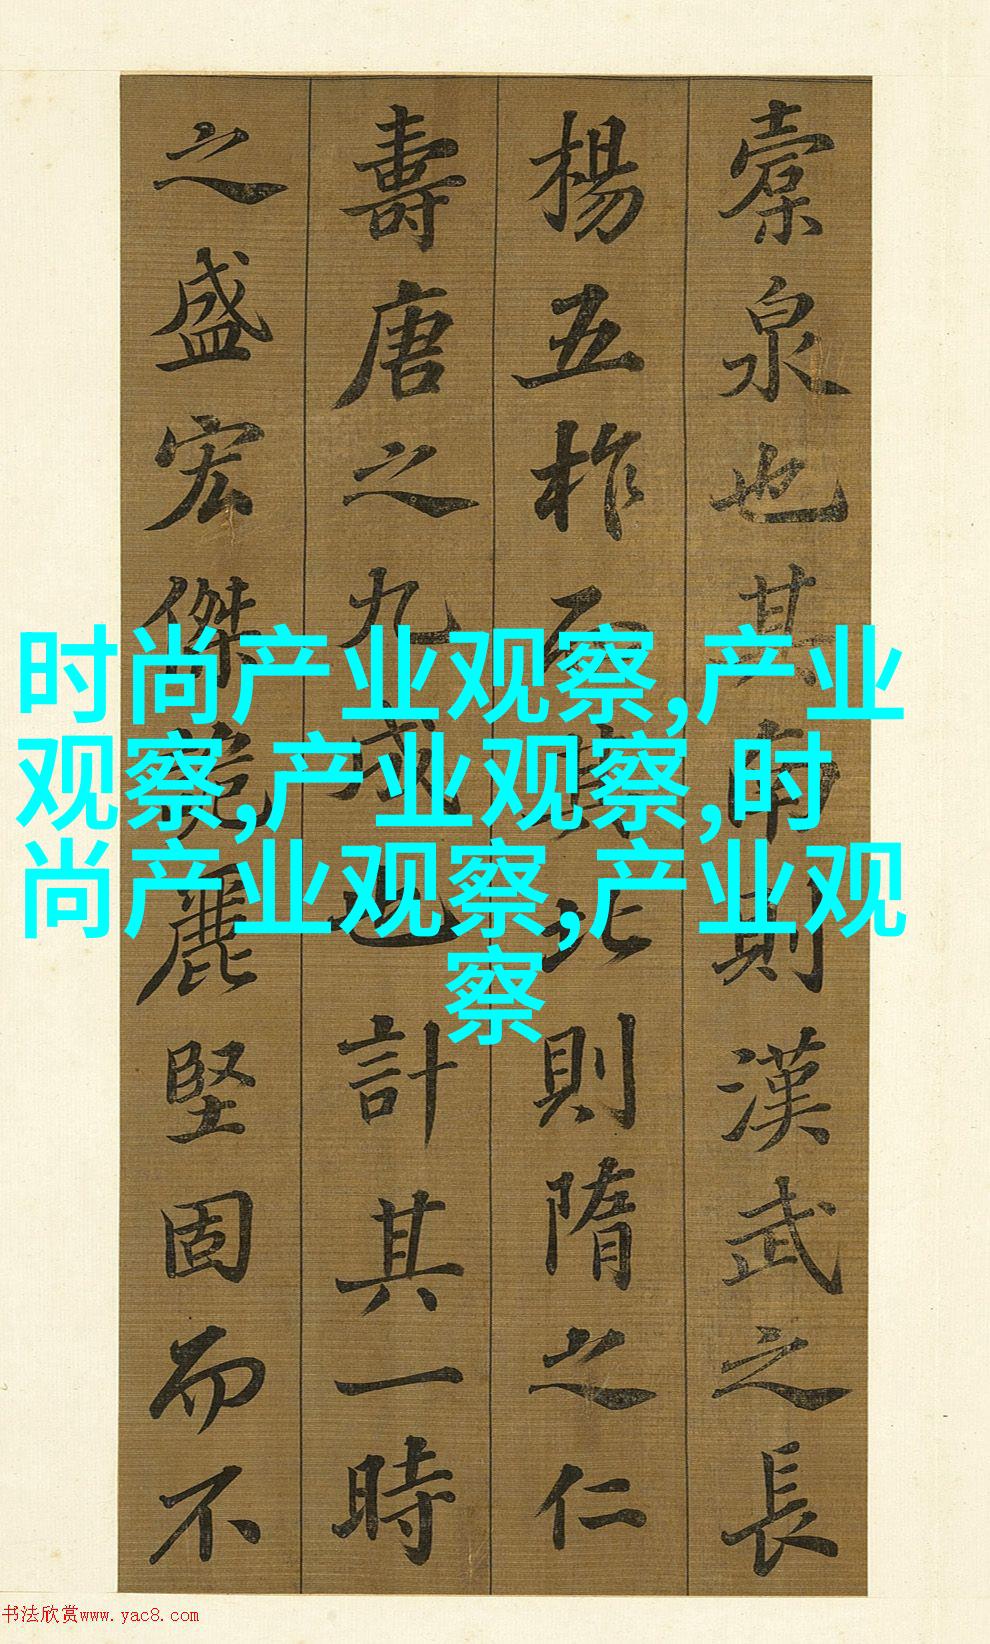 槖泉也其南則漢武之長
楊五柞而其北則隋之仁
壽唐之九成也計其一時
之盛宏傑麗堅固而不
时尚产业观察,产业
观察,产业观察,时
尚产业观察,产业观
察
书法欣赏www.yac8.com